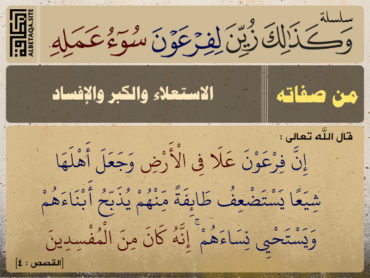 سلسلة
وَكَذَٰلِكَ زُيِّنَ لِفِرْعَوْنَ سُوٓءُ عَمَلِهِ
البطاقة
ALBETAQA.SITE
من صفاته
الاستعلاء والكبر والإفساد
قال الله تعالى :
إِنَّ فِرْعَوْنَ عَلَا فِي الْأَرْضِ وَجَعَلَ أَهْلَهَا
شِيَعًا يَسْتَضْعِفُ طَائِفَةً مِّنْهُمْ يُذَبِّحُ أَبْنَاءَهُمْ
وَيَسْتَحْيِي نِسَاءَهُمْ ۚ إِنَّهُ كَانَ مِنَ الْمُفْسِدِينَ
[القصص : ٤]